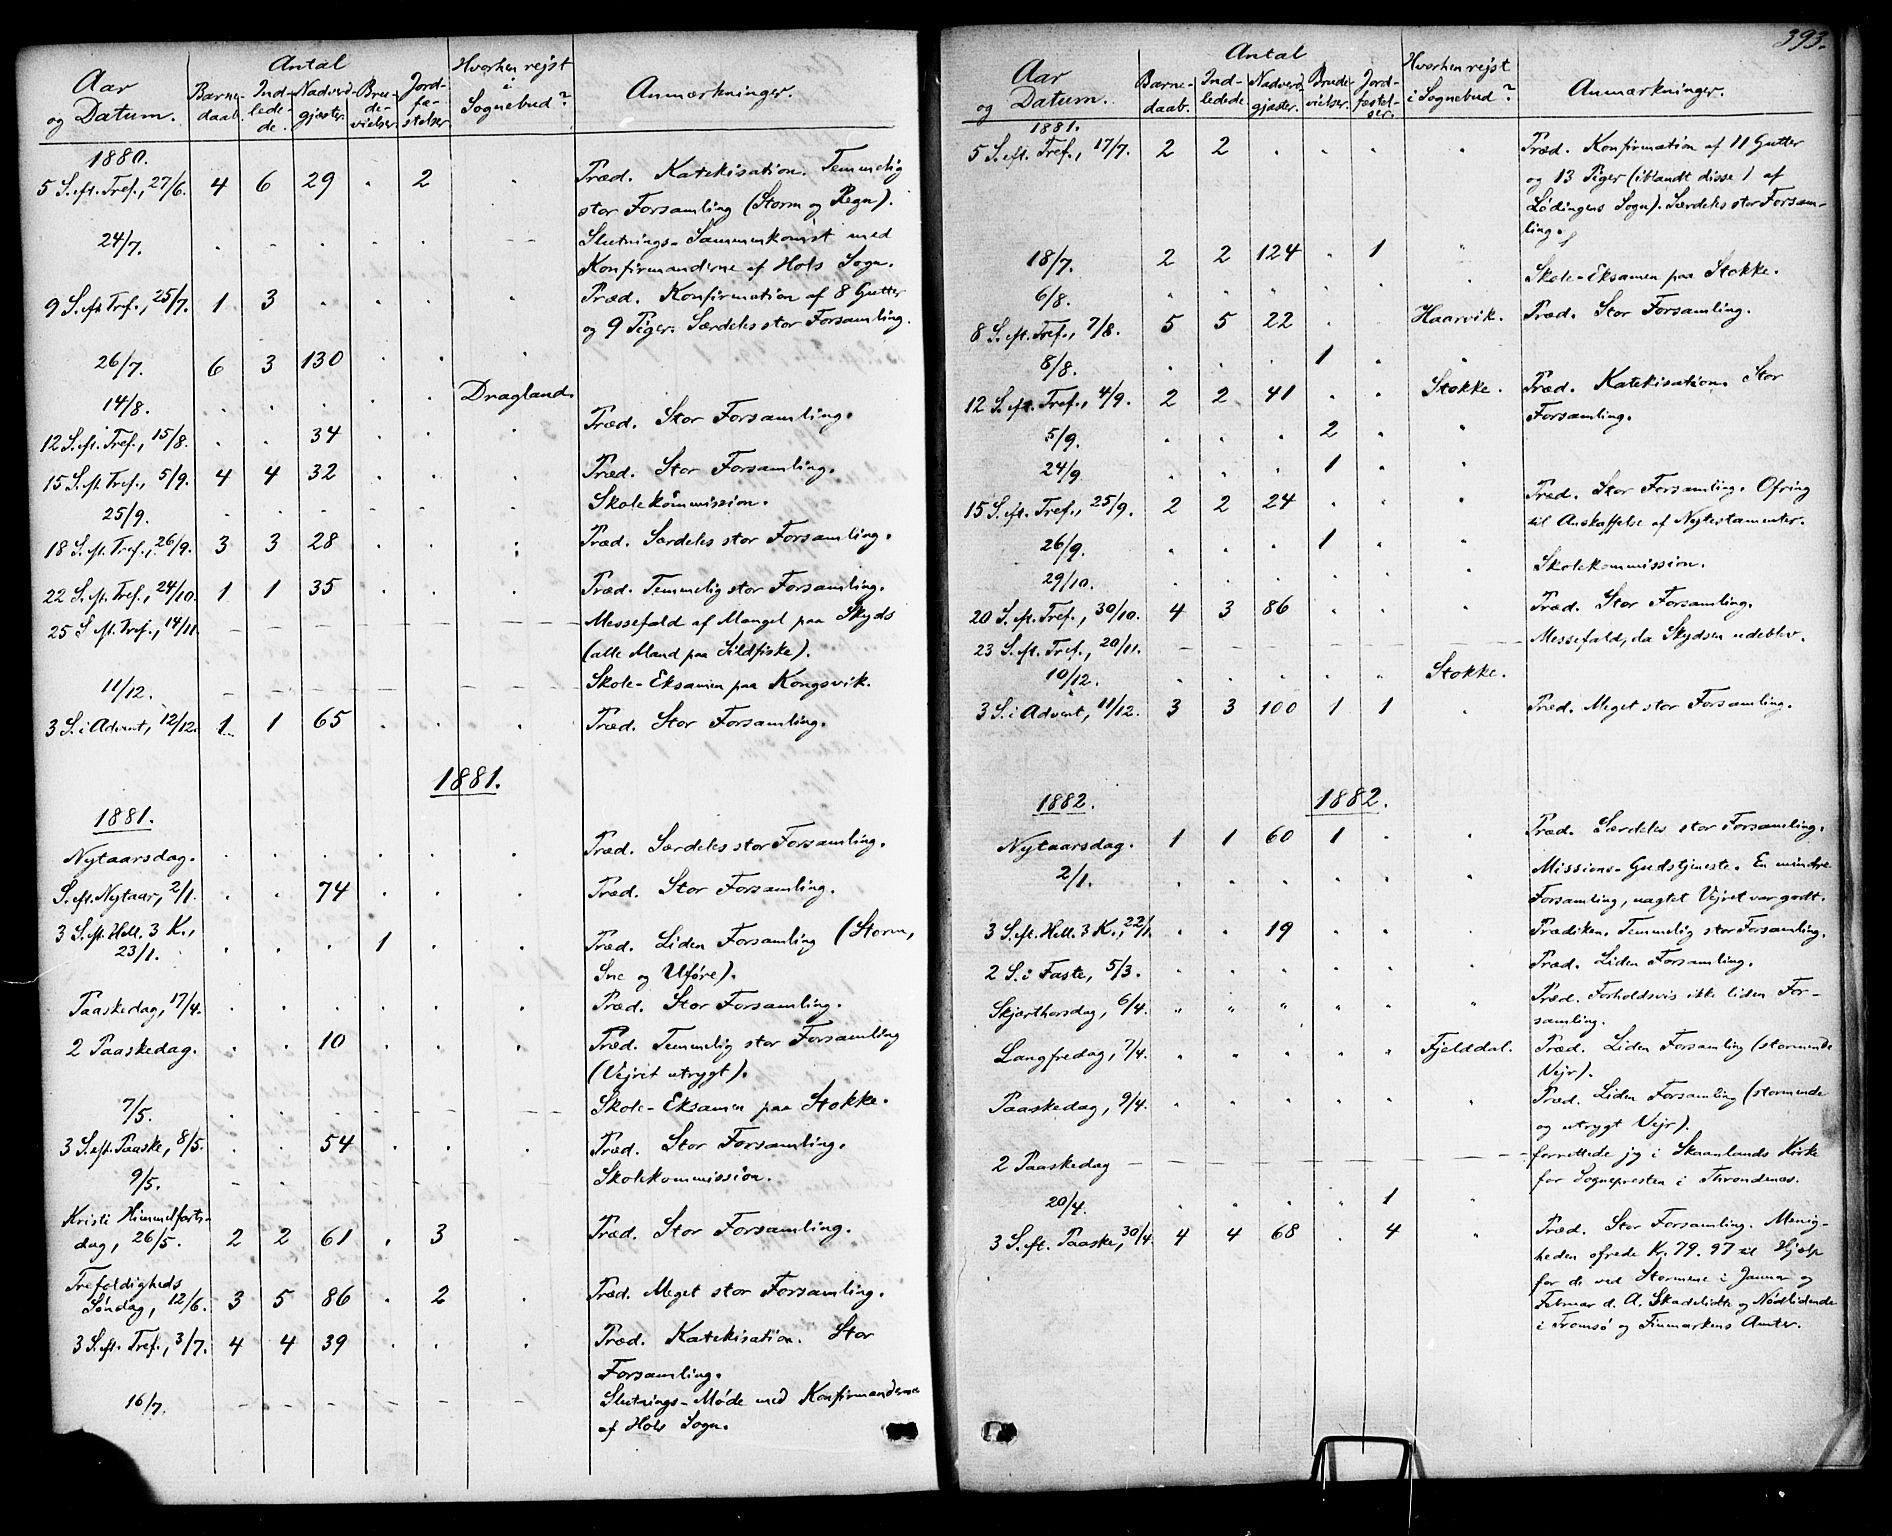 Aar og Datum. | Antal | Barne-daab | Ind-lede-de. | Nadverd-gjæster. | Bru-de-vielser. | Jord-fæ-stelser | Hvorhen rejst i Sognebud? | Anmærkninger.
1880.
5 S. eft. Tref., 27/6. 4 6 29 . 2 . Præd. Katekisation. Temmelig
stor Forsamling (Storm og Regn).
24/7. . . . . . - - Slutnings-Sammenkomst med
Konfirmanderne af Hols Sogn.
9 S. eft. Tref., 25/7. 1 3 . . . . Præd. Konfirmation af 8 Gutter
og 9 Piger. Særdeles stor Forsamling.
26/7. 6 3 130 . . .
14/8. . . . . . Dragland.
12 S. eft. Tref., 15/8. . . 34 . . . Præd. Stor Forsamling.
15 S. eft. Tref., 5/9. 4 4 32 . . . Præd. Stor Forsamling.
25/9. . . . . . . Skolekommission.
18 S. eft. Tref., 26/9. 3 3 28 . . . Præd. Særdeles stor Forsamling.
22 S. eft. Tref., 24/10. 1 1 35 . . . Præd. Temmelig stor Forsamling.
25 S. eft. Tref., 14/11. - - - - - - Messefald af Mangel paa Skyds
(alle Mand paa Sildfiske).
11/12. - - - - - - Skole-Eksamen paa Kongsvik.
3 S. i Advent, 12/12. 1 1 65 . . . Præd. Stor Forsamling.
1881.
1881.
Nytaarsdag. . . . . . . Præd. Særdeles stor Forsamling.
S. eft. Nytaar, 2/1. . . 74 . . . Præd. Stor Forsamling.
3 S. eft. Hell. 3 K.,
23/1. . . . 1 . . Præd. Liden Forsamling (Storm,
Sne og Uføre).
Paaskedag, 17/4. . . . . . . Præd. Stor Forsamling.
2 Paaskedag. . . 10 . . . Præd. Temmelig stor Forsamling
(Vejret utrygt).
7/5. . . . - - - Skole-Eksamen paa Stokke.
3 S. eft. Paaske, 8/5. . . 54 . . . Præd. Stor Forsamling.
9/5. - - . . . . Skolekommission.
Kristi Himmelfarts-
dag, 26/5. 2 2 61 . 3 . Præd. Stor Forsamling.
Trefoldigheds
Søndag, 12/6. 3 5 86 . 2 . Præd. Meget stor Forsamling.
3 S. eft. Tref., 3/7. 4 4 39 . . . Præd. Katekisation. Stor
Forsamling.
16/7. - - - - - - Slutnings-Møde med Konfirmanderne
af Hols Sogn.
393.
Aar og Datum. | Antal | Barne-daab. | Ind-ledede | Nadverd-gjæster. | Brude-vielser. | Jord-fæstel-ser. | Hvorhen rejst i Sognebud? | Anmærkninger.
1881.
5 S. eft. Tref., 17/7. 2 2 . . . . Præd. Konfirmation af 11 Gutter
og 13 Piger (iblandt disse 1 af
Lødingens Sogn). Særdeles stor Forsam-
ling.
18/7. 2 2 124 . 1 .
6/8. . . . . . . Skole-Eksamen paa Stokke.
8 S. eft. Tref., 7/8. 5 5 22 . . Haarvik. Præd. Stor Forsamling.
8/8. . . . 1 . .
12 S. eft. Tref., 4/9. 2 2 41 . . Stokke. Præd. Katekisation. Stor
Forsamling.
5/9. . . . 2 . .
24/9 . . . 1 . .
15 S. eft. Tref., 25/9. 2 2 24 . . . Præd. Stor Forsamling. Ofring
til Anskaffelse af Nytestamenter.
26/9. . . . 1 . .
29/10. . . . . . . Skolekommission.
20 S. eft. Tref., 30/10. 4 3 86 . . . Præd. Stor Forsamling.
23 S. eft. Tref., 20/11. - - - - - - Messefald, da Skydsen udeblev.
10/12. . . . . . Stokke.
3 S. i Advent, 11/12. 3 3 100 1 1 . Præd. Meget stor Forsamling.
1882. 1882.
Nytaarsdag. 1 1 60 1 . . Præd. Særdeles stor Forsamling.
2/1. . . . . . . Missions-Gudstjeneste. En mindre
Forsamling, uagtet Vejret var godt.
3 S. eft. Hell. 3 K., 22/1. . . 19 . . . Prædiken. Temmelig stor Forsamling.
2 S. i Faste, 5/3. . . . . . . Præd. Liden Forsamling.
Skjærthorsdag, 6/4. " " " " " " Præd. Forholdsvis ikke liden For-
samling.
Langfredag, 7/4. " " " " " Fjelddal. Præd. Liden Forsamling (stormende
Vejr).
Paaskedag, 9/4. " " " " " " Præd. Liden Forsamling (stormende
og utrygt Vejr).
2 Paaskedag - - - - - - forrettede jeg i Skaanlands Kirke
for Sognepresten i Throndenæs.
20/4. " " " " 1 "
3 S. eft. Paaske, 30/4. 4 4 68 . 4 " Præd. Stor Forsamling. Menig-
heden ofrede Kr. 79. 97 til Hjælp
for de ved Stormene i Januar og
Februar d. A. Skadelidte og Nødlidende
i Tromsø og Finmarkens Amter.